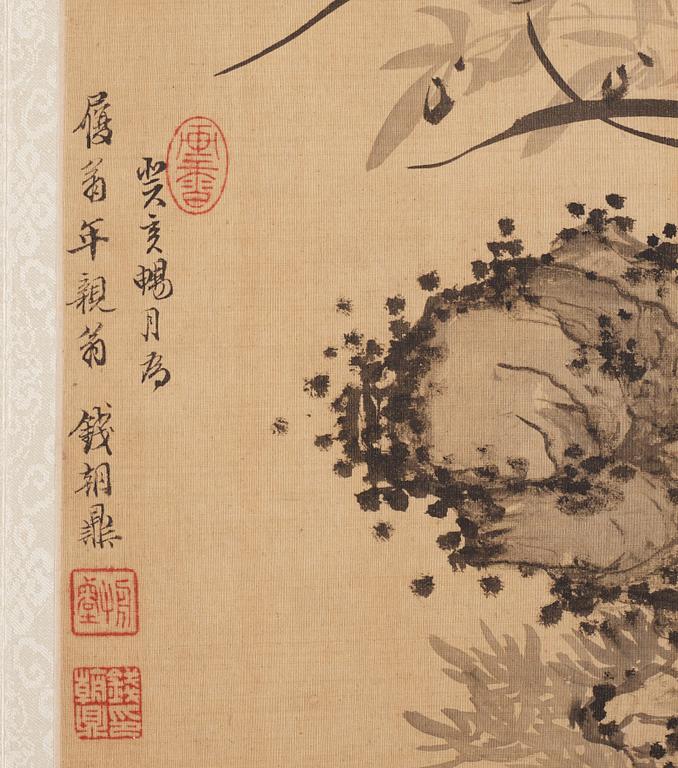 癸亥暢月為
履翁年親翁 錢朝鼎
錢印朝鼎